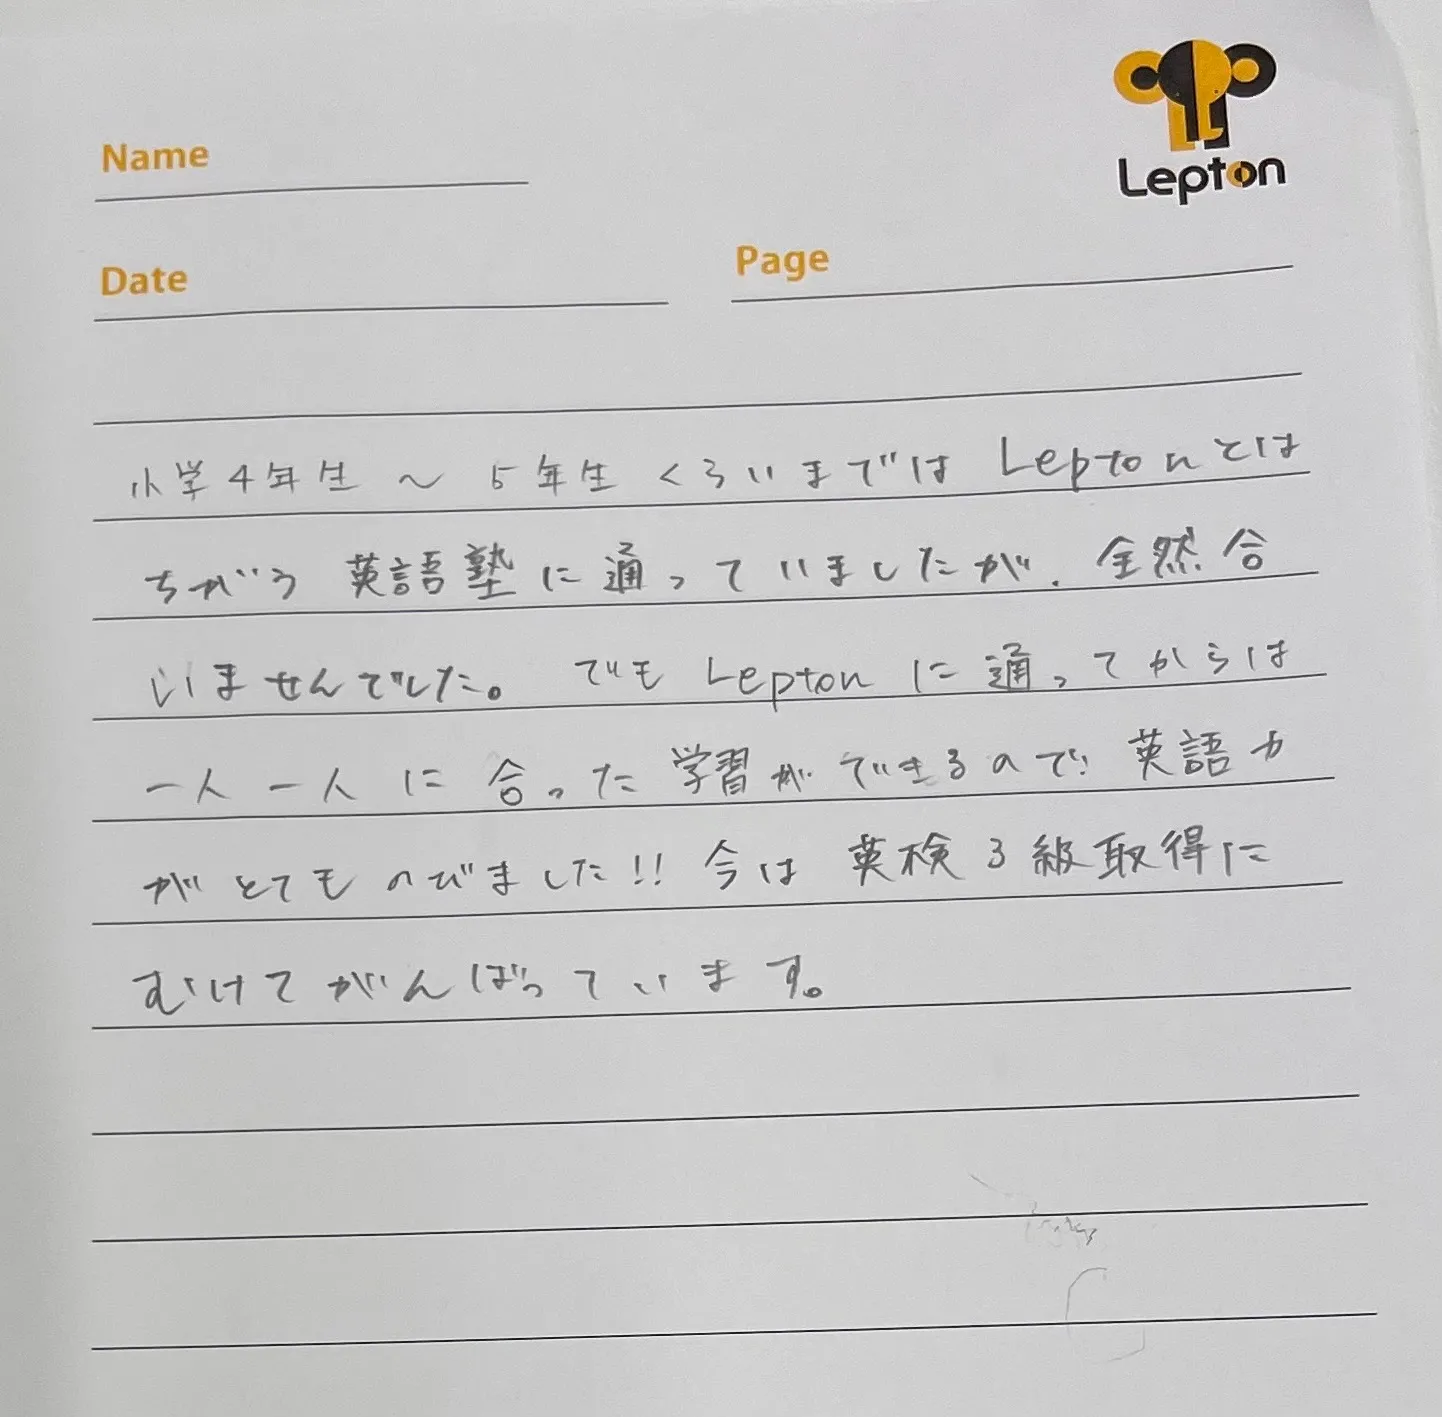 Lepton
Name
Date
Page
小学4年生〜5年生くらいまでは Leptonとは
ちがう英語塾に通っていましたが、全然合
いませんでした。でもLeptonに通ってからは
一人一人に合った学習ができるので英語力
がとてものびました!!今は英検3級取得に
むけてがんばっています。